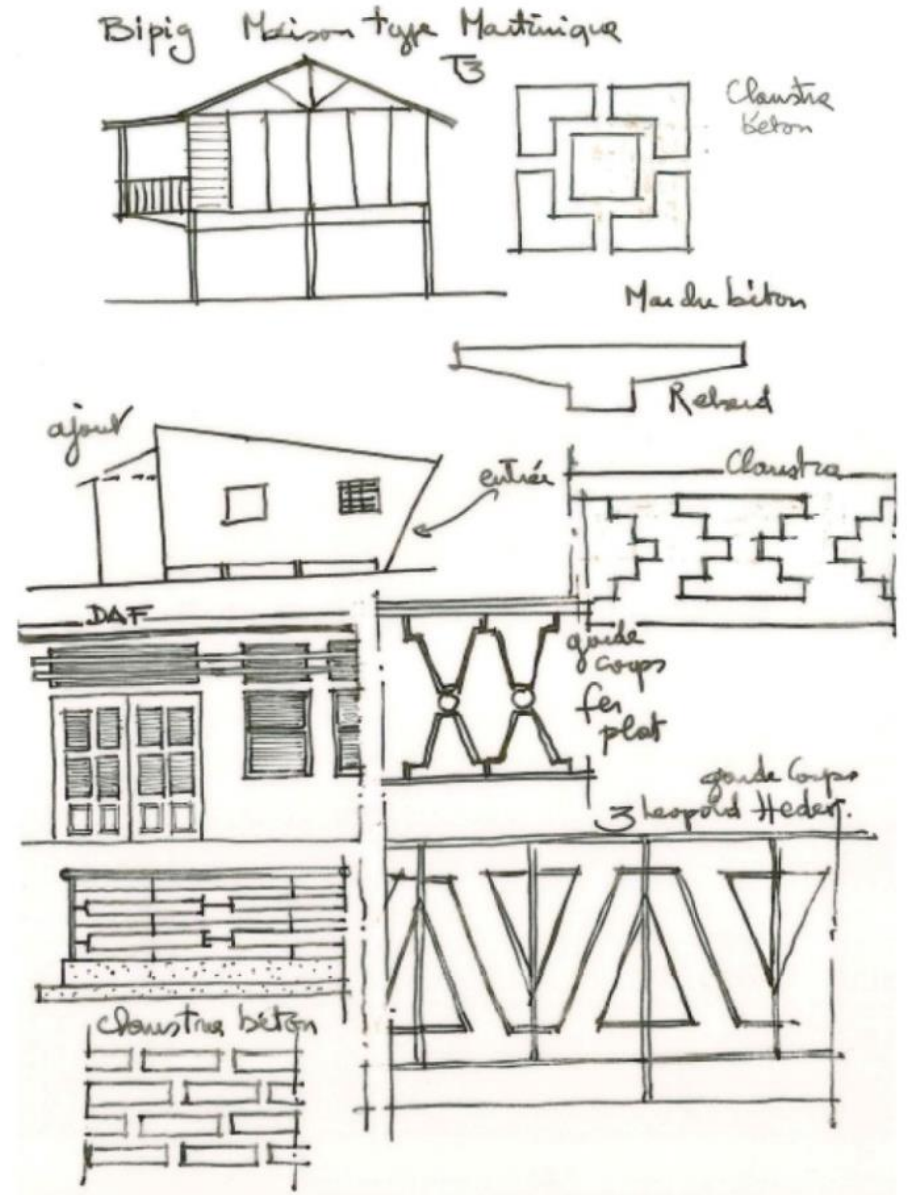 Bipig Maison type Martinique
T3
Claustra
béton
béton
ajout
entrée
Claustra
DAF
garde
corps
fer
plat
garde Corps
3 Leopold Heder.
Claustra béton